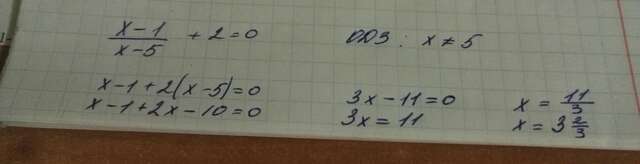 x-1/x-5 + 2 = 0
ОДЗ : x ≠ 5
x-1+2(x-5)=0
x-1+2x-10=0
3x-11=0
3x=11
x = 11/3
x = 3 2/3